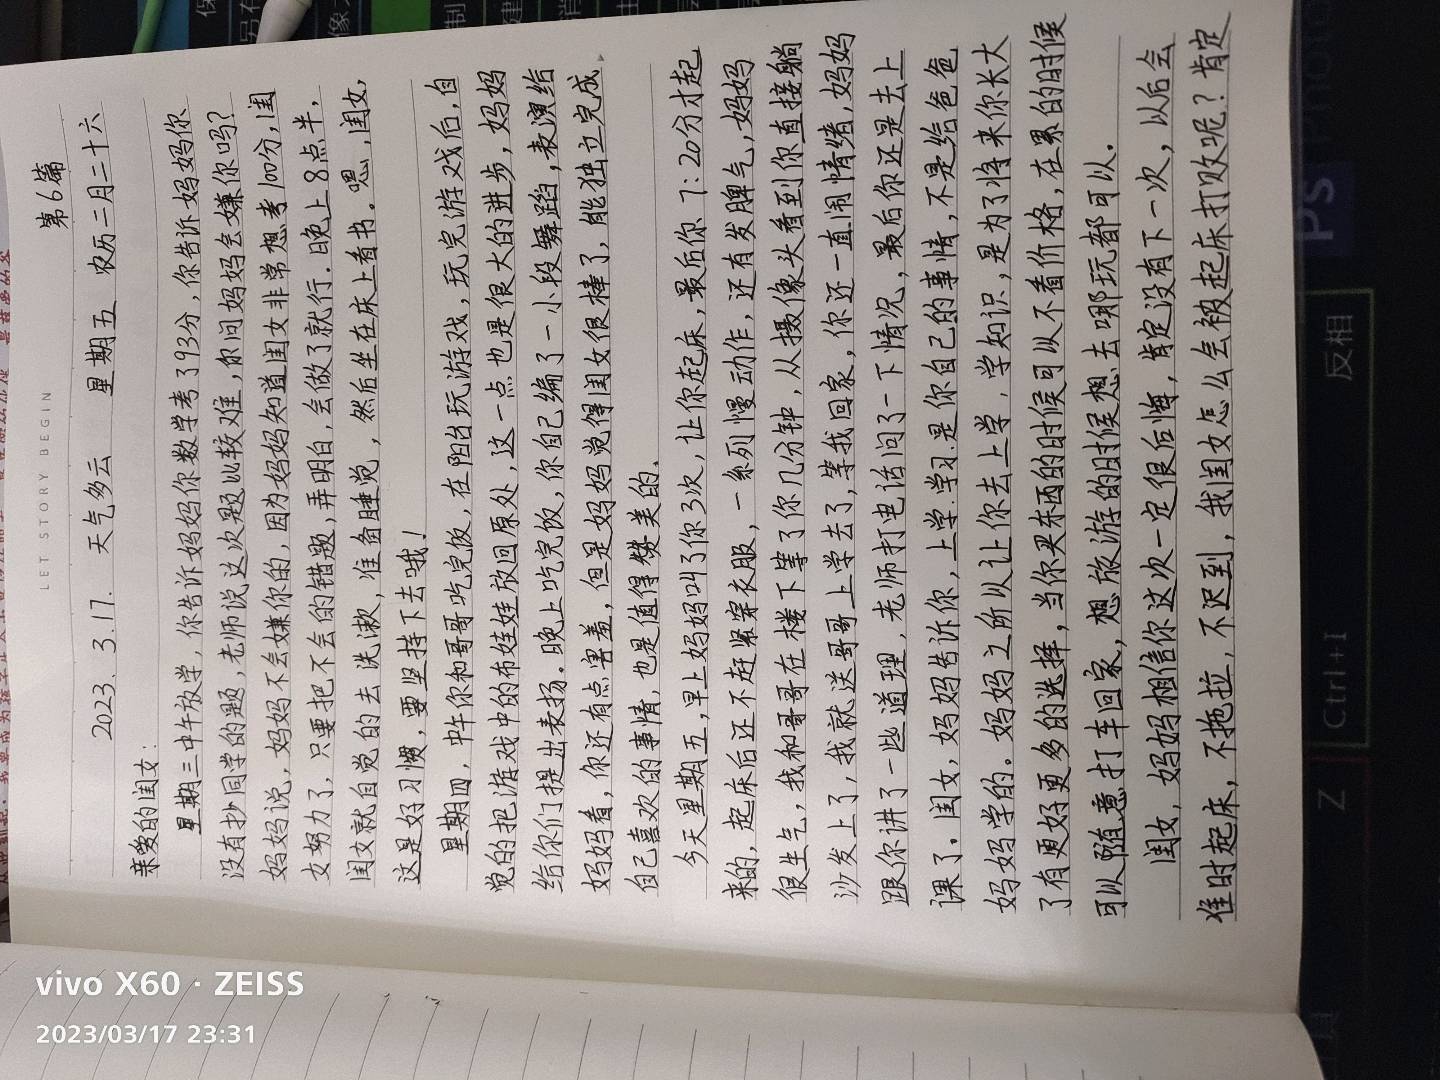 LET STORY BEGIN
第6篇
2023. 3.17. 天气多云 星期五 农历二月二十六
亲爱的闺女：
星期三中午放学，你告诉妈妈你数学考了93分，你告诉妈妈你
没有抄同学的题，老师说这次题比较难，你问妈妈会嫌你吗？
妈妈说，妈妈不会嫌你的，因为妈妈知道闺女非常想考100分，闺
女努力了，只要把不会的错题，弄明白，会做了就行．晚上8点半，
闺女就自觉的去洗漱，准备睡觉，然后坐在床上看书。嗯，闺女，
这是好习惯，要坚持下去哦！
星期四，中午你和哥哥吃完饭，在阳台玩游戏，玩完游戏后，自
觉的把游戏中的布娃娃放回原处，这一点也是很大的进步，妈妈
给你们提出表扬。晚上吃完饭，你自己编了一小段舞蹈，表演给
妈妈看，你还有点害羞，但是妈妈觉得闺女很棒了，能独立完成
自己喜欢的事情，也是值得赞美的．
今天星期五，早上妈妈叫了你3次，让你起床，最后你7：20分才起
来的，起床后还不赶紧穿衣服，一系列慢动作，还有发脾气，妈妈
很生气，我和哥哥在楼下等了你几分钟，从摄像头看到你直接躺
沙发上了，我就送哥哥上学去了，等我回家，你还一直闹情绪，妈妈
跟你讲了一些道理，老师打电话问了一下情况，最后你还是去上
课了．闺女，妈妈告诉你，上学.学习是你自己的事情，不是给爸爸
妈妈学的。妈妈之所以让你去上学，学知识，是为了将来你长大
了有更好更多的选择，当你买东西的时候可以不看价格，在累的时候
可以随意打车回家，想旅游的时候想去哪玩都可以．
闺女，妈妈相信你这次一定很后悔，肯定没有下一次，以后会
准时起床，不拖拉，不迟到，我闺女怎么会被起床打败呢？肯定
PS
反相
Ctrl+I
Z
vivo X60 · ZEISS
2023/03/17 23:31